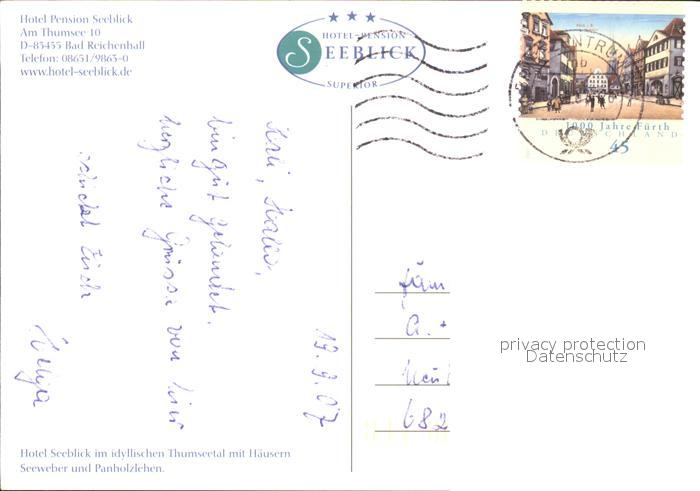 Hotel Pension Seeblick
Am Thumsee 10
D-83435 Bad Reichenhall
Telefon: 08651/9863-0
www.hotel-seeblick.de
HOTEL-PENSION
SEEBLICK
SUPERIOR
1000 Jahre Fürth
DEUTSCHLAND
45
19.9.07
bin gut gelandet.
herzliche Grüsse von hier
schickt Euch
Helga
Fam
A. +
682
privacy protection
Datenschutz
Hotel Seeblick im idyllischen Thumseetal mit Häusern
Seeweber und Panholzlehen.